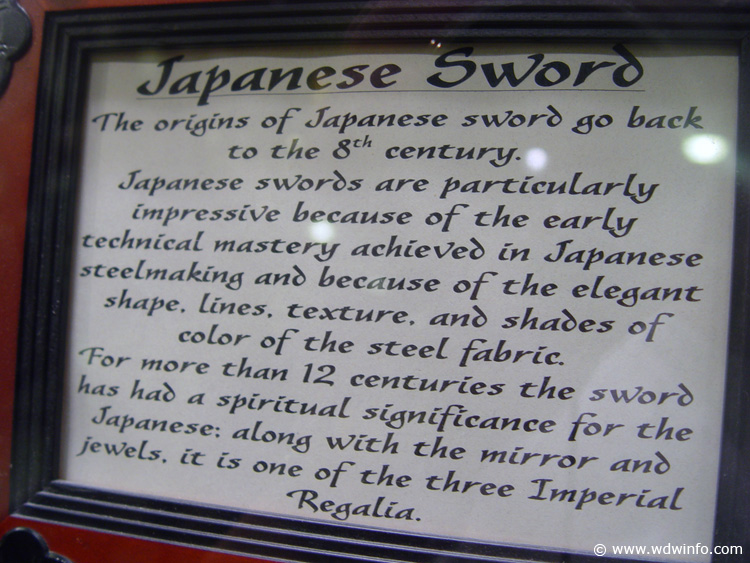 Japanese Sword
The origins of Japanese sword go back
to the 8th century.
Japanese swords are particularly
impressive because of the early
technical mastery achieved in Japanese
steelmaking and because of the elegant
shape, lines, texture, and shades of
color of the steel fabric.
For more than 12 centuries the sword
has had a spiritual significance for the
Japanese; along with the mirror and
jewels, it is one of the three Imperial
Regalia.
© www.wdwinfo.com